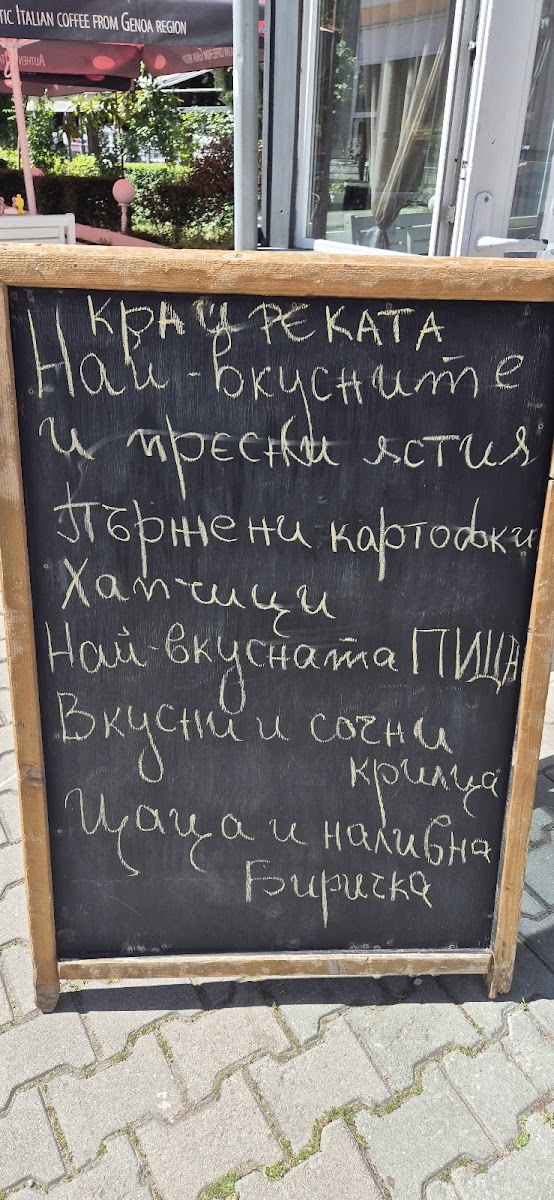 TIC ITALIAN COFFEE FROM GENOA REGION
край РЕКАТА
Най-вкусните
и пресни ястия
Пържени картофки
Хапчици
Най-вкусната ПИЦА
Вкусни и сочни
крилца
Цаца и наливна
Биричка